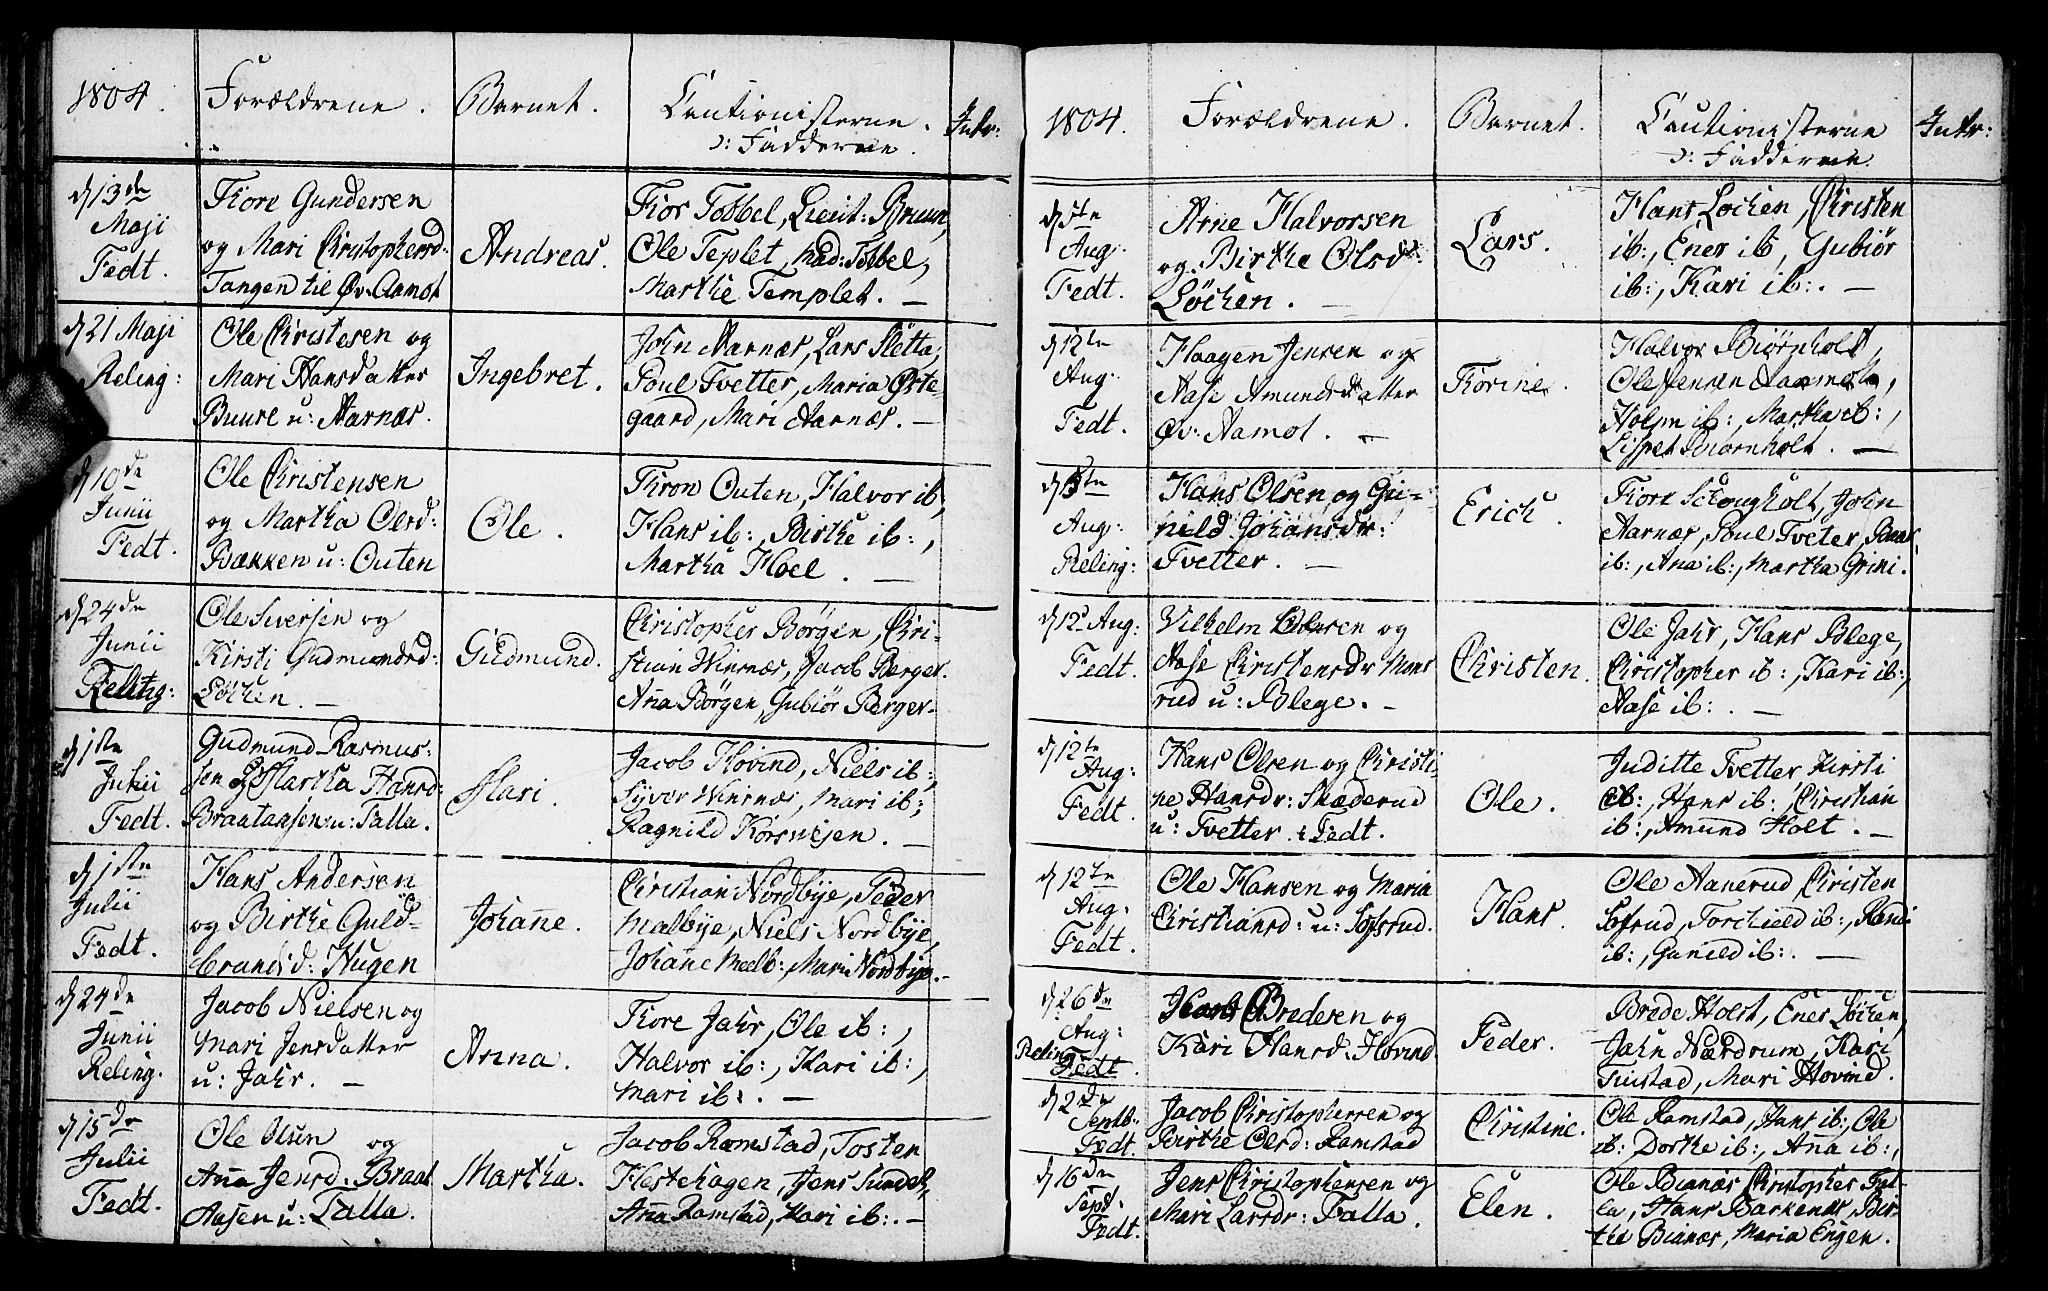 1804.
Forældrene.
Barnet.
Cautionisterne
ɔ: Fadderne.
Intr:
d 13de
Maji
Fedt.
Tore Gundersen
og Mari Christophersd:
Tangen til Øv. Aamot
Andreas.
Tior Tobbel, Lieut: Bruun,
Ole Teplet, Mad: Tobbel,
Marthe Templet. —
d 21 Maji
Reling:
Ole Christesen og
Mari Hansdatter
Buure u: Aarnæs.
Ingebret.
John Aarnæs, Lars Sletta,
Poul Tvetter, Maria Øste-
gaard, Mari Aarnæs. —
d 10de
Junii
Fedt.
Ole Christensen
og Martha Olsd:
Bækken u: Outen
Ole.
Tron Outen, Halvor ib,
Hans ib:, Birthe ib:,
Martha Hoel. —
d 24de
Junii
Reling:
Ole Siversen og
Kirsti Gudmundsd:
Løchen. —
Gudmund.
Christopher Børgen, Chri-
stian Winsnæs, Jacob Berger.
Anna Børgen, Gubiør Berger-
d 1ste
Julii
Fedt.
Gudmund Rasmus-
sen og Martha Hansd:
Braataasen u: Falla.
Mari.
Jacob Hovind, Niels ib:,
Syver Winsnæs, Mari ib:,
Ragnild Korsvejen. —
d 1ste
Julii
Fedt.
Hans Andersen
og Birthe Guld-
brandsd: Hugen
Johanne.
Christian Nordbye, Peder
Malbye, Niels Nordbye,
Johane Melb:, Mari Nordbye.-
d 24de
Junii
Reling.
Jacob Nielsen og
Mari Jensdatter
u: Jahr. —
Anna.
Tore Jahr, Ole ib:,
Halvor ib:, Kari ib:,
Mari ib:. —
d 15de
Julii
Fedt.
Ole Olsen og
Anna Jensd: Braat
Aasen u: Falla.
Martha.
Jacob Ramstad, Tosten
Hestehagen, Jens Sundet,
Anna Ramstad, Kari ib:. —
1804.
Forældrene.
Barnet.
Cautionisterne
ɔ: Fadderne.
Intr:
d 5te
Aug:
Fedt.
Arne Halvorsen
og Birthe Olsd:
Løchen. —
Lars.
Hans Lochen, Christen
ib:, Ener ib, Gubiør
ib:, Kari ib:. —
d 12te
Aug:
Fedt.
Haagen Jensen og
Aase Amundsdatter
Øv: Aamot. —
Torine.
Halvor Biørnholt,
Ole Jensen Aamot,
Holm ib:, Martha ib:,
Lispet Biørnholt. —
d 5te
Aug:
Reling:
Hans Olsen og Gu-
nild Johansdr:
Tvetter. —
Erich.
Tore Schougholt, John
Aarnæs, Poul Tveter,
ib:, Ana ib:, Martha Grini.
d 12 Aug:
Fedt.
Vilhelm Olsen og
Aase Christensdr Mons
rud u: Blege. -
Christen.
Ole Jahr, Hans Blege,
Christopher ib:, Kari ib:,
Aase ib:. —
d 12te
Aug:
Fedt.
Hans Olsen og Christi-
ne Hansdr: Skæderud
u: Tvetter. i Fedt.
Ole.
Juditte Tvetter Kirsti
ib:, Hans ib:, Christian
ib:, Amund Holt. —
d 12te
Aug.
Fedt.
Ole Hansen og Maria
Christiansd: u: Sofsrud.
Hans.
Ole Aanerud Christen
Sofsrud, Torchield ib:, Randi
ib:, Gunild ib:. —
d 26de
Aug:
Reling
Fedt.
Bredesen og
Kari Hansd. Hovind
Peder.
Brede Holst, Ener Løchen,
John Nærdrum, Kari
Tiustad, Mari Hovind.
d 2de
Septb:
Fedt.
Jacob Christophersen og
Birthe Olsd: Ramstad
Christine.
Ole Ramstad, Hans ib:, Ole
ib: Dorthe ib:, Anna ib:,
d 16de
Sept:
Fedt.
Jens Christophersen og
Mari Larsdr: Falla.
Elen.
Ole Bianæs Christopher Fal-
la, Hans Bakkenæs, Bir-
the Bianæs, Maria Engen.